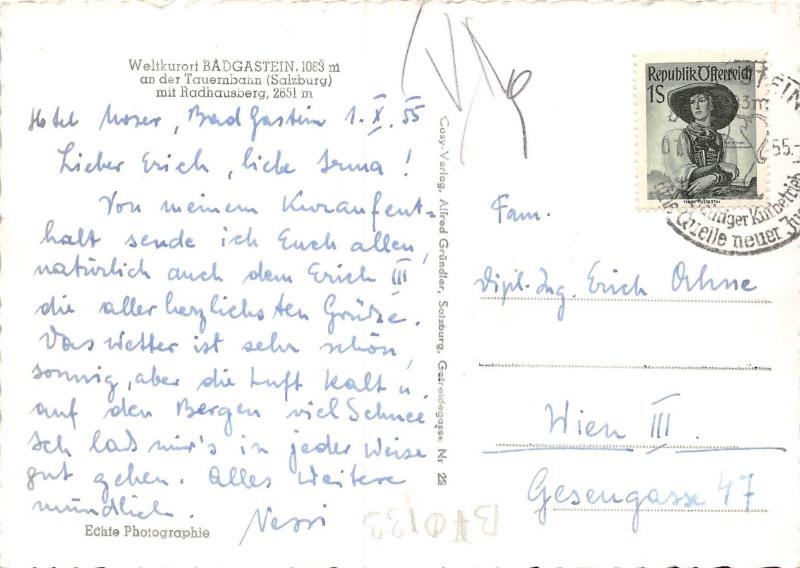 Weltkurort BADGASTEIN, 1083 m
an der Tauernbahn (Salzburg)
mit Radhausberg, 2651 m
Hotel Moser, Bad Gastein 1. X. 55
Lieber Erich, liebe Irma!
Von meinem Kuraufent=
halt sende ich Euch allen,
natürlich auch dem Erich III
die allerherzlichsten Grüße.
Das Wetter ist sehr schön,
sonnig, aber die Luft kalt u.
auf den Bergen viel Schnee.
Ich laß mir's in jeder Weise
gut gehen. Alles Weitere
mündlich.
Echte Photographie
Cosy-Verlag, Alfred Gründler, Salzburg, Getreidegasse Nr. 22
Republik Österreich
1S
55.-
Quelle neuer
Fam.
Dipl. Ing. Erich Ohne
Wien III.
Gesengasse 47